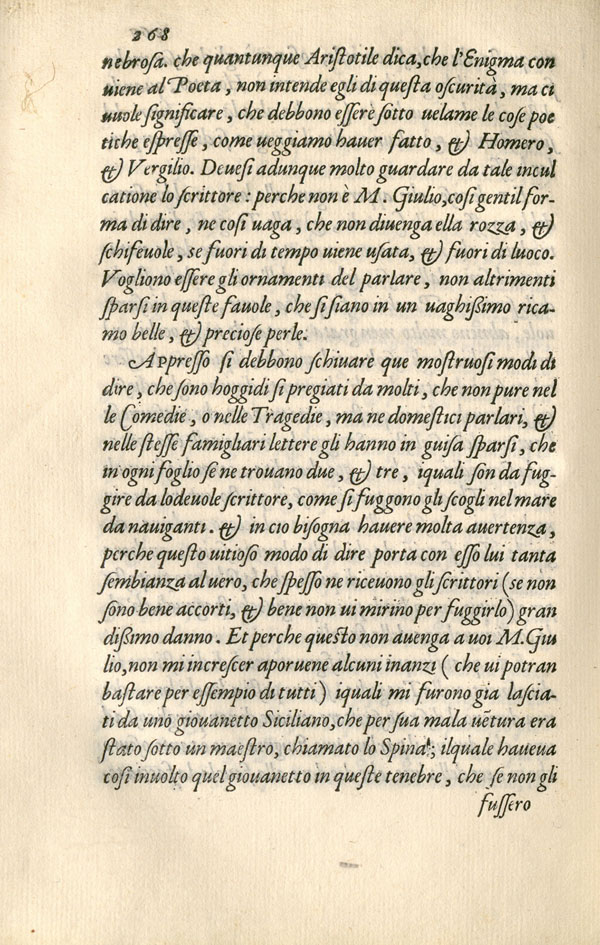 268
nebrosa. che quantunque Aristotile dica, che l'Enigma con
uiene al Poeta, non intende egli di questa oscurità, ma ci
uuole significare, che debbono essere sotto uelame le cose poe
tiche espresse, come ueggiamo hauer fatto, & Homero,
& Vergilio. Deuesi adunque molto guardare da tale incul
catione lo scrittore : perche non è M. Giulio, cosi gentil for-
ma di dire, ne cosi uaga, che non diuenga ella rozza, &
schifeuole, se fuori di tempo uiene usata, & fuori di luoco.
Vogliono essere gli ornamenti del parlare, non altrimenti
sparsi in queste fauole, che si siano in un uaghißimo rica-
mo belle, & preciose perle.
Appresso si debbono schiuare que mostruosi modi di
dire, che sono hoggidi si pregiati da molti, che non pure nel
le Comedie, o nelle Tragedie, ma ne domestici parlari, &
nelle stesse famigliari lettere gli hanno in guisa sparsi, che
in ogni foglio se ne trouano due, & tre, iquali son da fug-
gire da lodeuole scrittore, come si fuggono gli scogli nel mare
da nauiganti. & in cio bisogna hauere molta auertenza,
perche questo uitioso modo di dire porta con esso lui tanta
sembianza al uero, che spesso ne riceuono gli scrittori (se non
sono bene accorti, & bene non ui mirino per fuggirlo) gran
dißimo danno. Et perche questo non auenga a uoi M. Giu
lio, non mi increscer aporuene alcuni inanzi ( che ui potran
bastare per essempio di tutti ) iquali mi furono gia lascia-
ti da uno giouanetto Siciliano, che per sua mala uẽtura era
stato sotto un maestro, chiamato lo Spina ; ilquale haueua
cosi inuolto quel giouanetto in queste tenebre, che se non gli
fussero